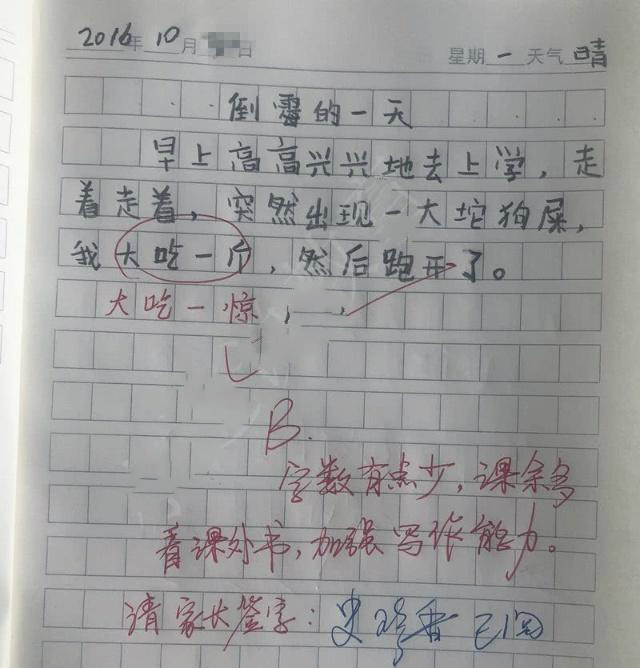 2016年 10月 日 星期一 天气晴
倒霉的一天
早上高高兴兴地去上学，走
着走着，突然出现一大坨狗屎，
我大吃一斤，然后跑开了。
大吃一惊，
B.
字数有点少，课余多
看课外书，加强写作能力。
请家长签字：史 香 已阅